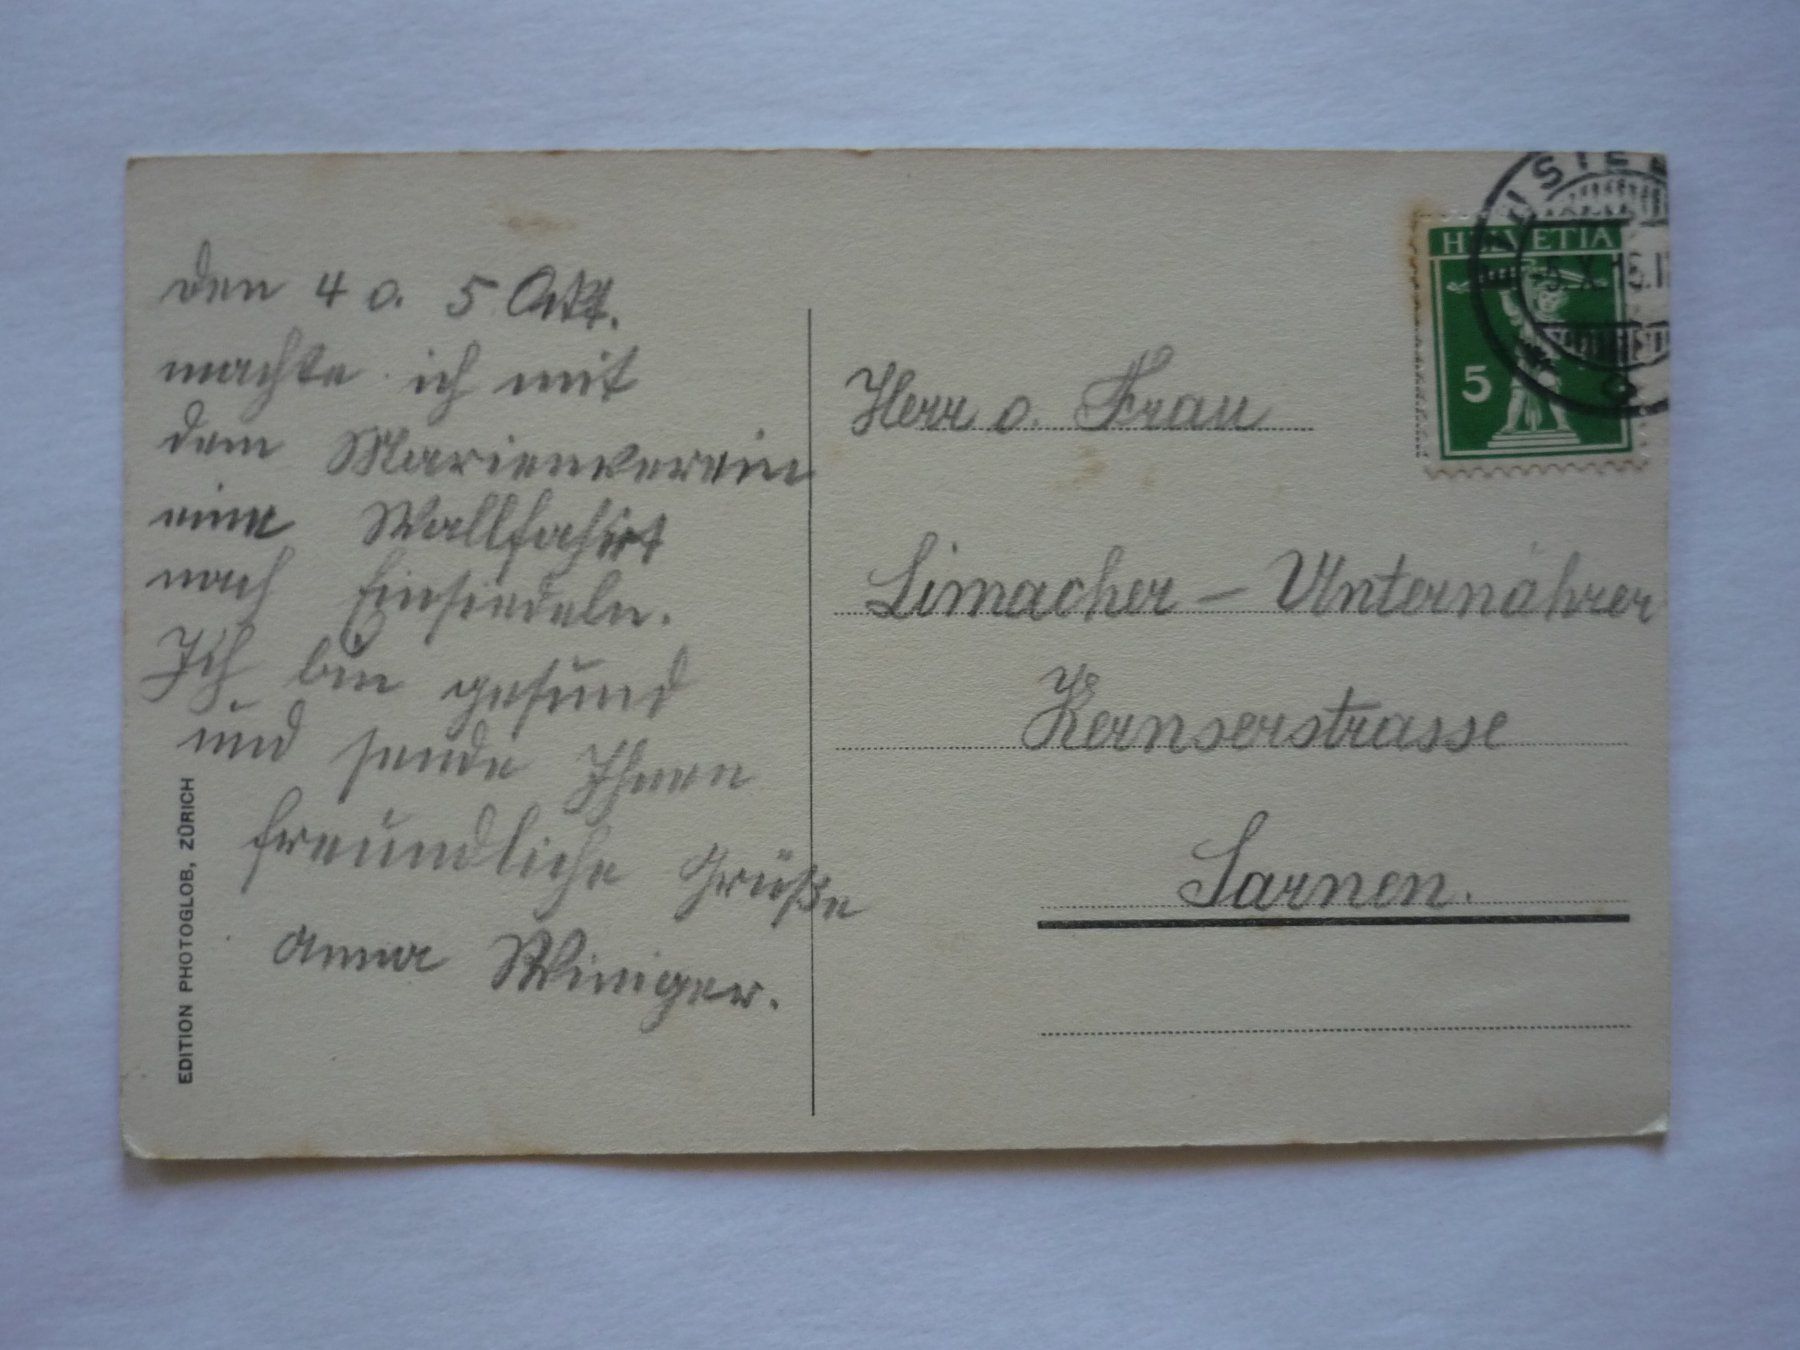 den 4 o. 5 Okt.
machte ich mit
dem Marienverein
eine Wallfahrt
nach Einsiedeln.
Ich bin gesund
und sende Ihnen
freundliche Grüße
Anna Winiger.
EDITION PHOTOGLOB, ZÜRICH
HELVETIA
5
Herr o. Frau
Limacher – Unternährer
Kernserstrasse
Sarnen.